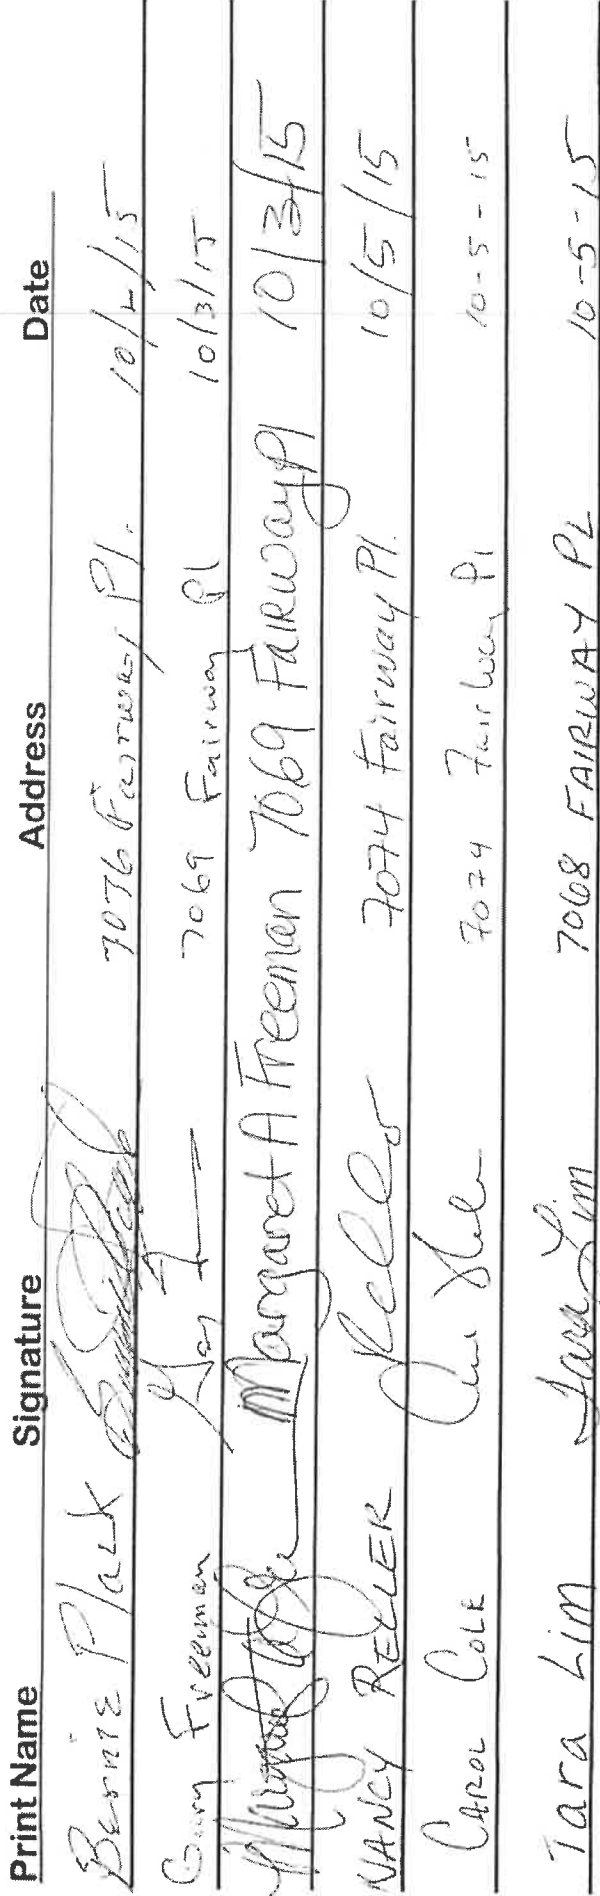 Print Name Signature Address Date
Bernie Plack 7076 Fairway Pl. 10/2/15
Gary Freeman Gary F 7069 Fairway Pl 10/3/15
Margaret A Freeman 7069 Fairway Pl 10/3/15
NANCY RELLER Reller 7074 Fairway Pl. 10/5/15
CAROL COLE 7074 Fairway Pl 10-5-15
Tara Lim Tara Lim 7068 FAIRWAY PL 10-5-15